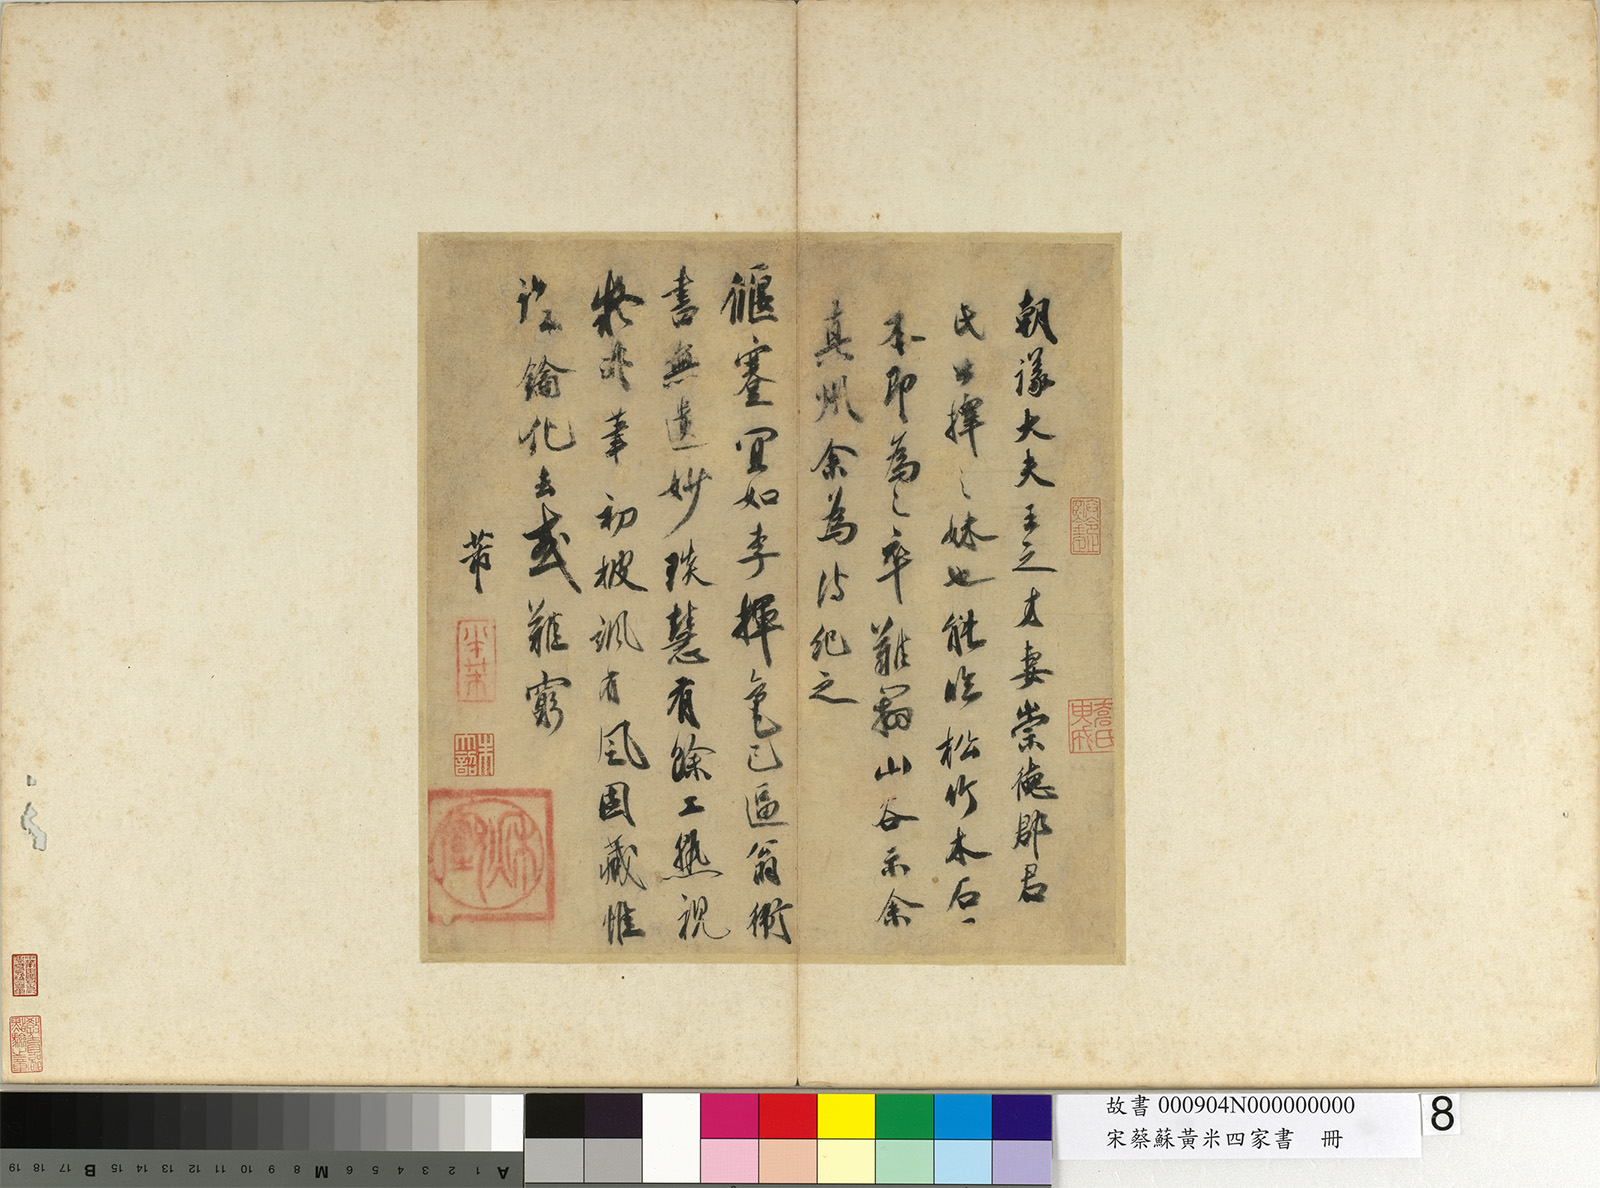 朝議大夫王之才妻崇德郡君
氏公擇之妹也能臨松竹木石一
本即為之卒難辨山谷示余
真州余為詩紀之
偃蹇宜如李揮毫已逼翁衛
書無遺妙琰慧有餘工熟視
疑非筆初披颯有風固藏惟
謹鑰化去或難窮
芾
故書 000904N000000000
宋蔡蘇黃米四家書 冊
8
A 1 2 3 4 5 6 M 8 9 10 11 12 13 14 15 B 17 18 19